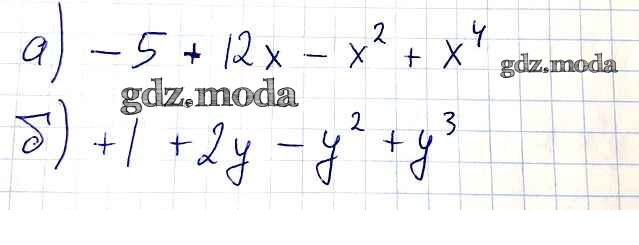 а) - 5 + 12x - x² + x⁴
gdz.moda
gdz.moda
б) +1 + 2y - y² + y³